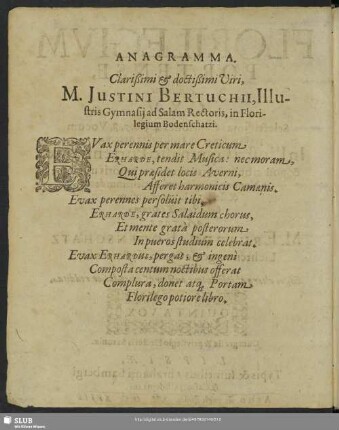 ANAGRAMMA.
Clarißimi & doctißimi Viri,
M. JUSTINI BERTUCHII, Illu-
stris Gymnasij ad Salam Rectoris, in Flori-
legium Bodenschatzi.
EVax perennis per mare Creticum
ERHARDE, tendit Musica: nec moram,
Qui præsidet locis Averni,
Afferet harmonicis Camænis.
Evax perennes persoluit tibi,
ERHARDE, grates Salaidum chorus,
Et mente grata posterorum
In pueros studium celebrat.
Evax ERHARDUS, pergat, & ingeni
Composta centum noctibus offerat
Complura, donet atq, Portam
Florilego potiore libro.
SLUB
Wir führen Wissen.